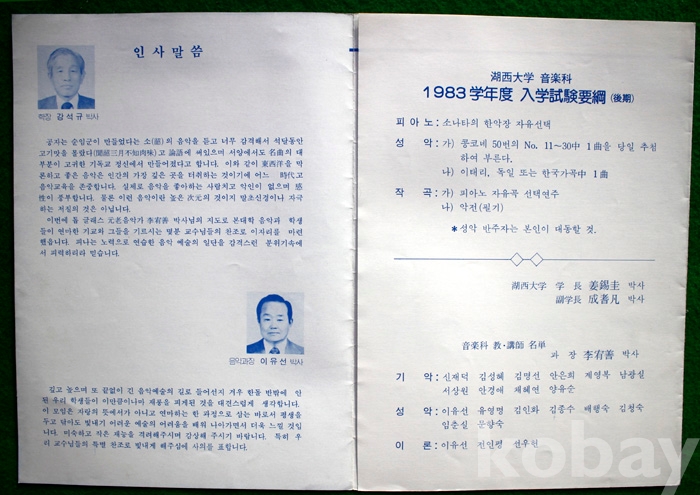 인사말씀
학장 강석규 박사
공자는 순임군이 만들었다는 소(韶)의 음악을 듣고 너무 감격해서 석달동안
고기맛을 몰랐다(聞韶三月不知肉味)고 論語에 씌있으며 서양에서도 名曲의 대
부분이 고귀한 기독교 정신에서 만들어졌다고 합니다. 이와 같이 東西洋을 막
론하고 좋은 음악은 인간의 가장 깊은 곳을 터취하는 것이기에 어느 時代고
음악교육을 존중합니다. 실제로 음악을 좋아하는 사람치고 악인이 없으며 感
性이 풍부합니다. 물론 이런 음악이란 높은 次元의 것이지 발초신경이나 자극
하는 저질의 것은 아닙니다.
이번에 톱 글래스 元老음악가 李宥善 박사님의 지도로 본대학 음악과 학생
들이 연마한 기교와 그들을 기르시는 몇분 교수님들의 찬조로 이자리를 마련
했읍니다. 피나는 노력으로 연습한 음악 예술의 일단을 감격스런 분위기속에
서 피력하리라 믿습니다.
음악과장 이유선 박사
깊고 높으며 또 끝없이 긴 음악예술의 길로 들어선지 겨우 한돌 반밖에 안
된 우리 학생들이 이만큼이나마 재롱을 피게된 것을 대견스럽게 생각합니다.
이 모임은 자랑의 뜻에서가 아니고 연마하는 한 과정으로 삼는 바로서 평생을
두고 닦아도 빛내기 어려운 예술의 어려움을 배워 나아가면서 더욱 느낄 것입
니다. 미숙하고 적은 재능을 격려해주시며 감상해 주시기 바랍니다. 특히 우
리 교수님들의 특별 찬조로 빛내게 해주심에 사의를 표합니다.
湖西大学 音楽科
1983 学年度 入学試験要綱 (後期)
피아노 : 소나타의 한악장 자유선택
성 악 : 가) 콩코네 50번의 No. 11~30中 1曲을 당일 추첨
하여 부른다.
나) 이태리, 독일 또는 한국가곡中 1曲
작 곡 : 가) 피아노 자유곡 선택연주
나) 악전(필기)
*성악 반주자는 본인이 대동할 것.
湖西大学 学長 姜錫圭 박사
副学長 成耆凡 박사
音楽科 教・講師 名単
과 장 李宥善 박사
기 악 : 신재덕 김성혜 김명선 안은희 계영복 남광실
서상원 안경애 채혜연 양유순
성 악 : 이유선 유영명 김인화 김종수 배행숙 김청숙
임춘실 문향숙
이 론 : 이유선 전인평 선우현
kobay